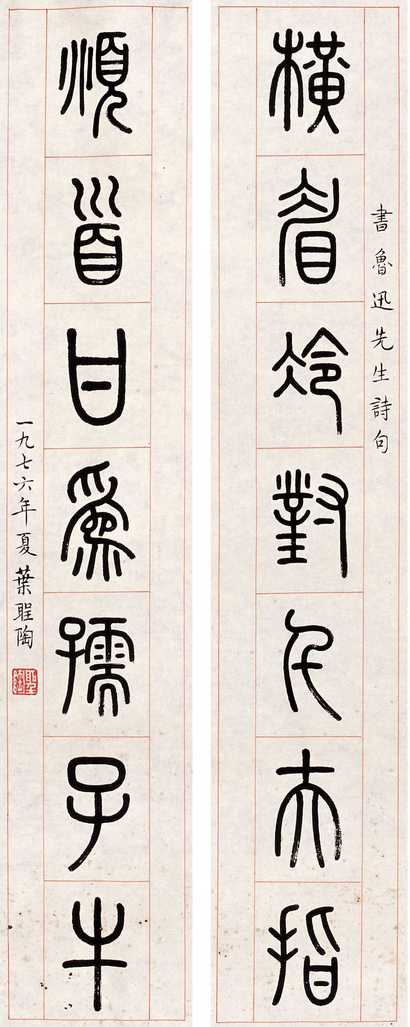 書魯迅先生詩句
橫眉冷對千夫指
頫首甘爲孺子牛
一九七六年夏葉聖陶
聖陶